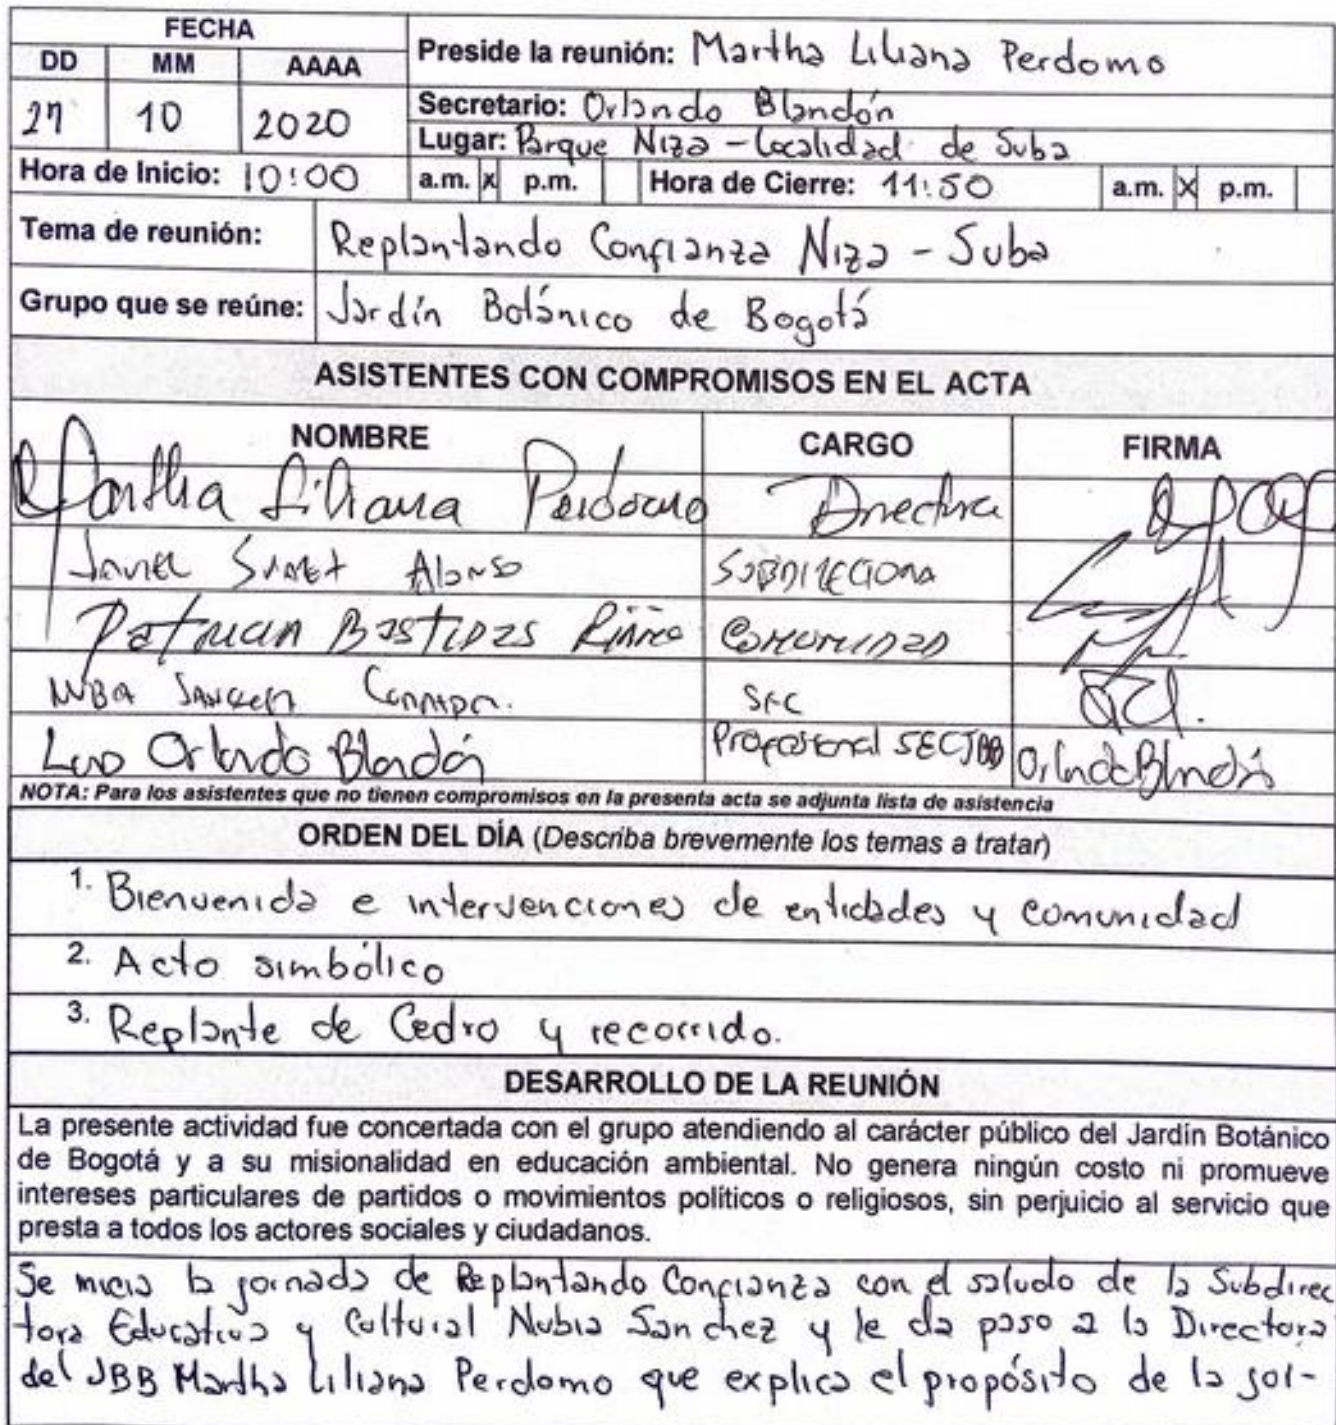 FECHA
DD MM AAAA
27 10 2020
Preside la reunión: Martha Liliana Perdomo
Secretario: Orlando Blandón
Lugar: Parque Niza - Localidad de Suba
Hora de Inicio: 10:00 a.m. x p.m. Hora de Cierre: 11:50 a.m. X p.m.
Tema de reunión: Replantando Confianza Niza - Suba
Grupo que se reúne: Jardín Botánico de Bogotá
ASISTENTES CON COMPROMISOS EN EL ACTA
NOMBRE CARGO FIRMA
Martha Liliana Perdomo Directora
Javier Alonso
Patricia Bastidas Comunidad
Luis Orlando Blandón Profesional SECJBB Orlando Blandón
NOTA: Para los asistentes que no tienen compromisos en la presenta acta se adjunta lista de asistencia
ORDEN DEL DÍA (Describa brevemente los temas a tratar)
1. Bienvenida e intervenciones de entidades y comunidad
2. Acto simbólico
3. Replante de Cedro y recorrido.
DESARROLLO DE LA REUNIÓN
La presente actividad fue concertada con el grupo atendiendo al carácter público del Jardín Botánico
de Bogotá y a su misionalidad en educación ambiental. No genera ningún costo ni promueve
intereses particulares de partidos o movimientos políticos o religiosos, sin perjuicio al servicio que
presta a todos los actores sociales y ciudadanos.
Se inicia la jornada de Replantando Confianza con el saludo de la Subdirec
tora Educativa y Cultural Nubia Sanchez y le da paso a la Directora
del JBB Martha Liliana Perdomo que explica el propósito de la jor-